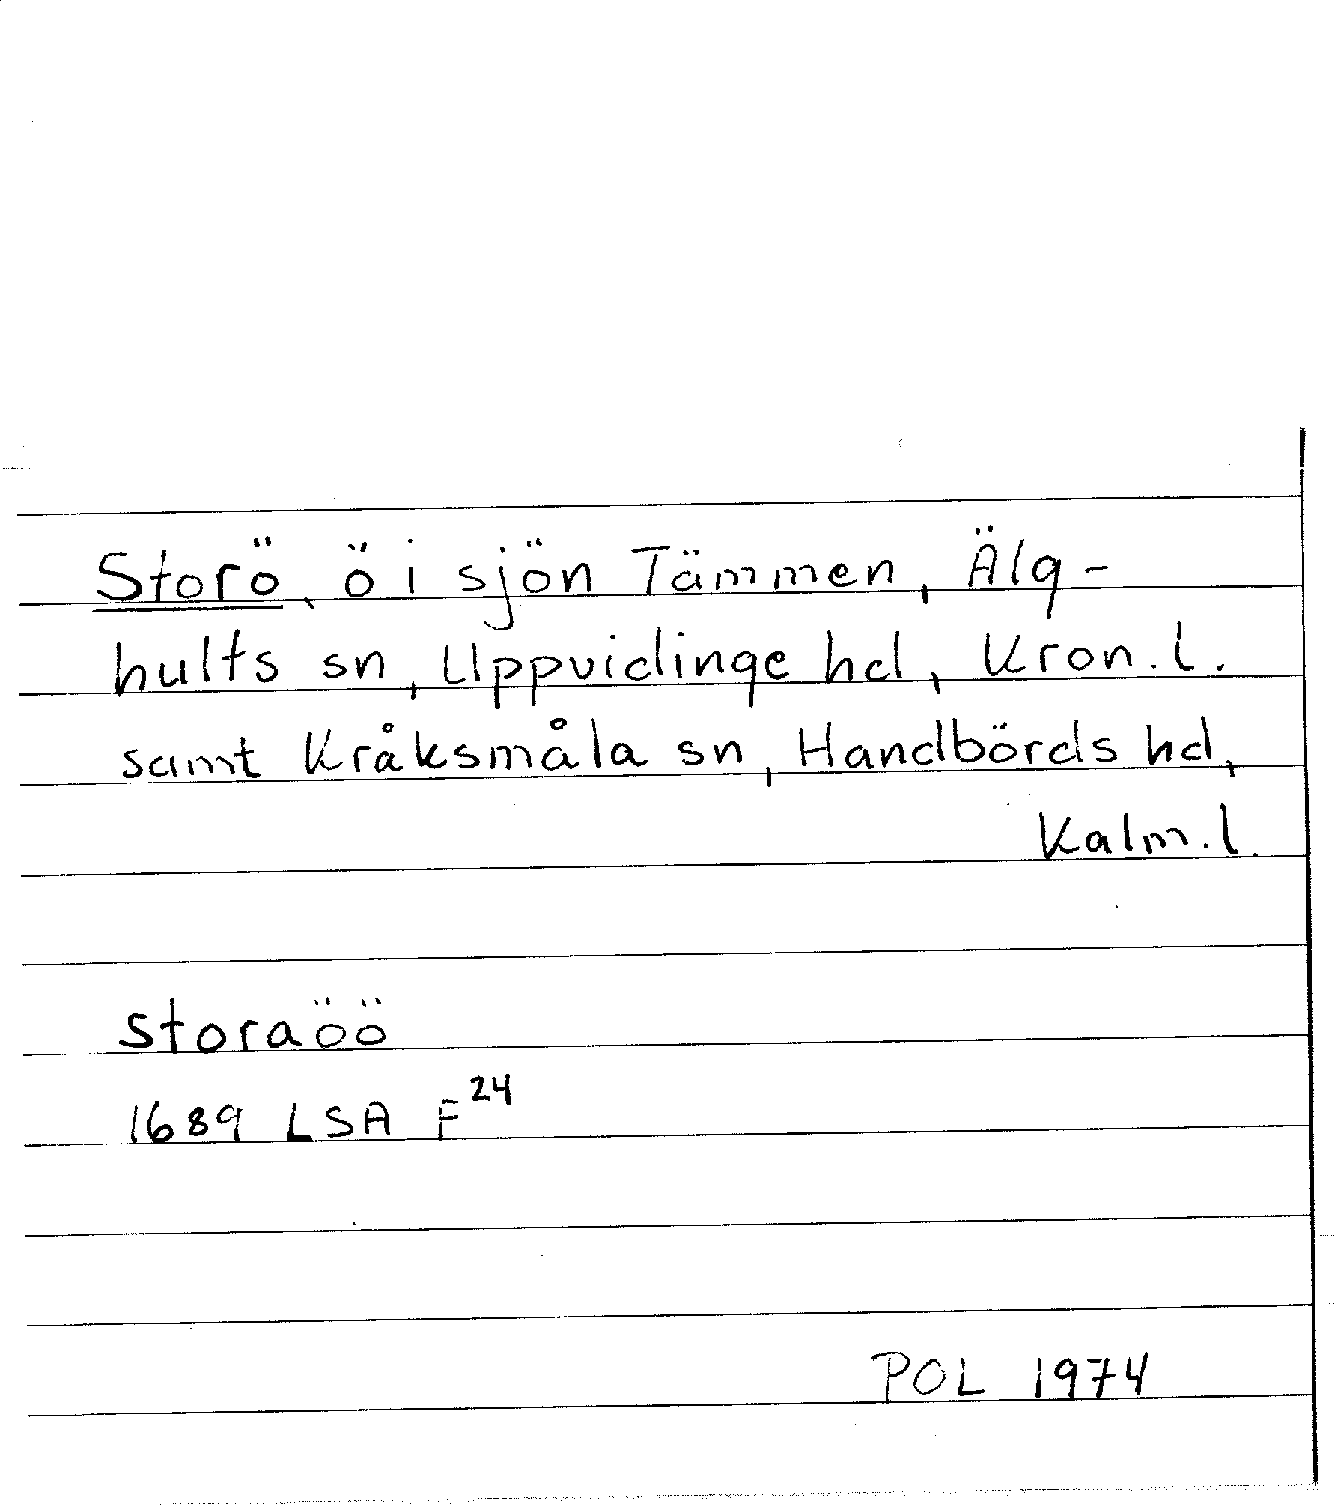 Storö, ö i sjön Tämmen, Älg-
hults sn, Uppvidinge hd, Kron. l.
samt Kråksmåla sn, Handbörds hd,
Kalm. l.
storaöö
1689 LSA F²⁴
POL 1974